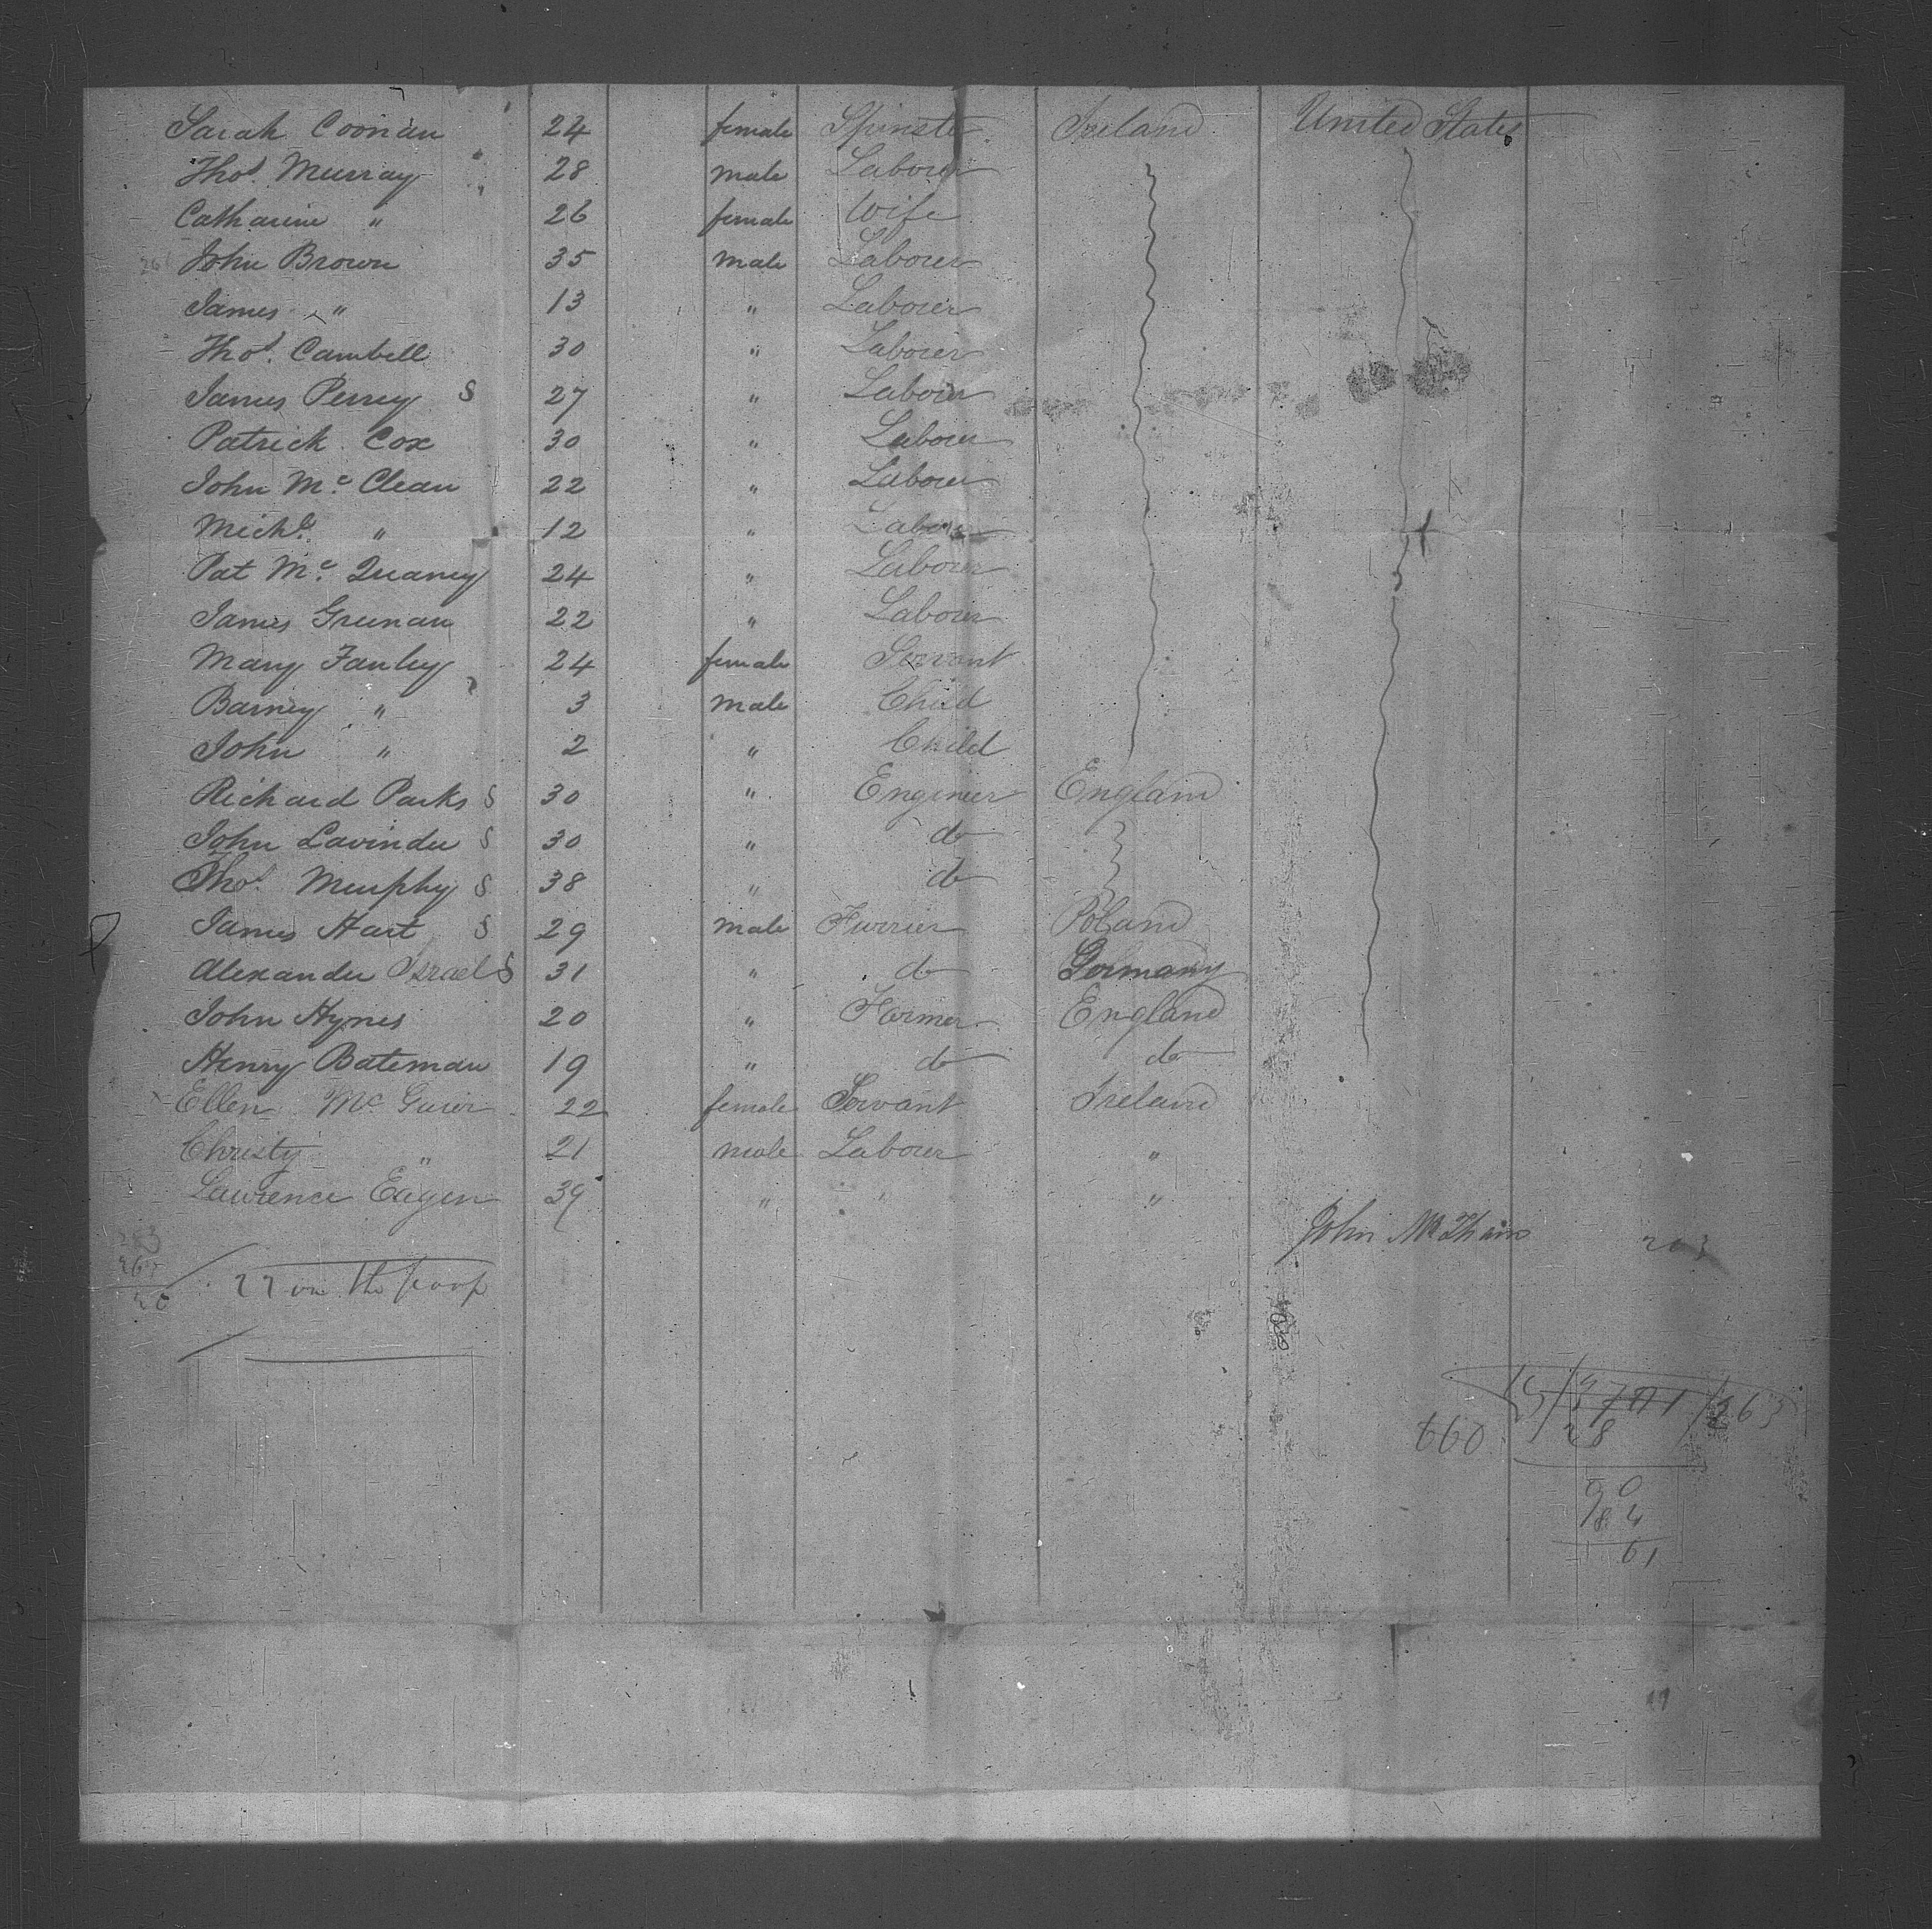 Sarah Coonan 24 female Spinster Ireland United States
Thos. Murray 28 male Labourer
Catharine " 26 female Wife
John Brown 35 male Labourer
James " 13 " Labourer
Thos. Cambell 30 " Labourer
James Perrey S 27 " Labourer
Patrick Cox 30 " Labourer
John Mc. Clean 22 " Labourer
Michl. " 12 " Labourer
Pat Mc. 24 " Labourer
James Greenan 22 " Labourer
Mary 24 female Servant
Barney " 3 male Child
John " 2 " Child
Richard Parks S 30 " Engineer England
John Lavinder S 30 " do
Thos. Murphy S 38 " do
James Hart S 29 male Furrier Poland
Alexander Israel S 31 " do Germany
John Hynes 20 " Farmer England
Henry Bateman 19 " do do
Ellen Mc Guier 22 female Servant Ireland
Christy " 21 male Labourer "
Lawrence Eagen 39 " " "
John
263
27 on the poop
660
28
90
84
61